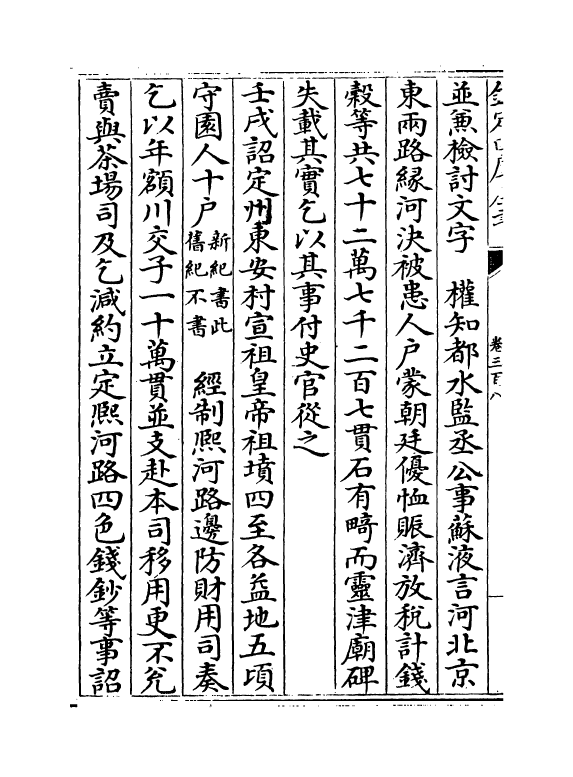 卷三百八
並兼檢討文字　權知都水監丞公事蘇液言河北京
東兩路緣河決被患人户蒙朝廷優恤賑濟放税計錢
榖等共七十二萬七千二百七貫石有畸而靈津廟碑
失載其實乞以其事付史官從之
壬戌詔定州東安村宣祖皇帝祖墳四至各益地五頃
守園人十户新紀書此舊紀不書　經制熈河路邊防財用司奏
乞以年額川交子一十萬貫並支赴本司移用更不兊
賣與茶場司及乞減約立定熈河路四色錢鈔等事詔